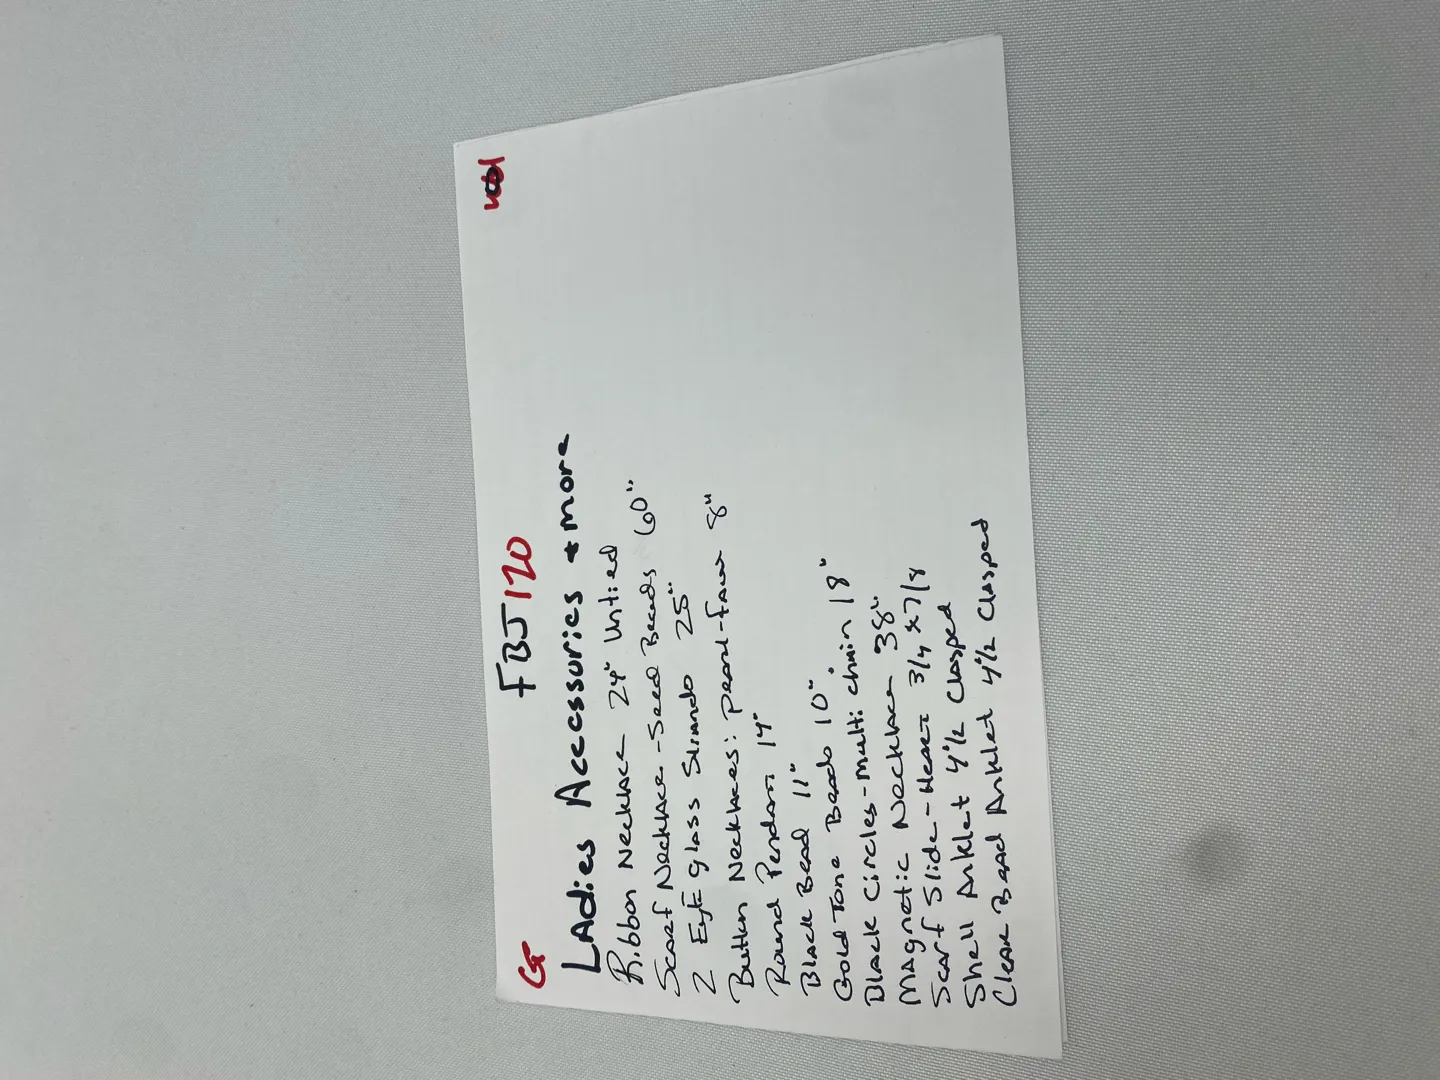 G FBJ120
LAdies Accessories & more
Ribbon Necklace 24" Untied
Scarf Necklace - Seed Beads 60"
2 Eye glass Strands 25"
Button Necklaces: pearl-faux 8"
Round Pendant 14"
Black Bead 11"
Gold Tone Beads 10"
Black Circles - Multi chain 18"
Magnetic Necklace 38"
Scarf Slide - Heart 3/4 x 7/8
Shell Anklet 4 1/2 Clasped
Clear Bead Anklet 4 1/2 Clasped